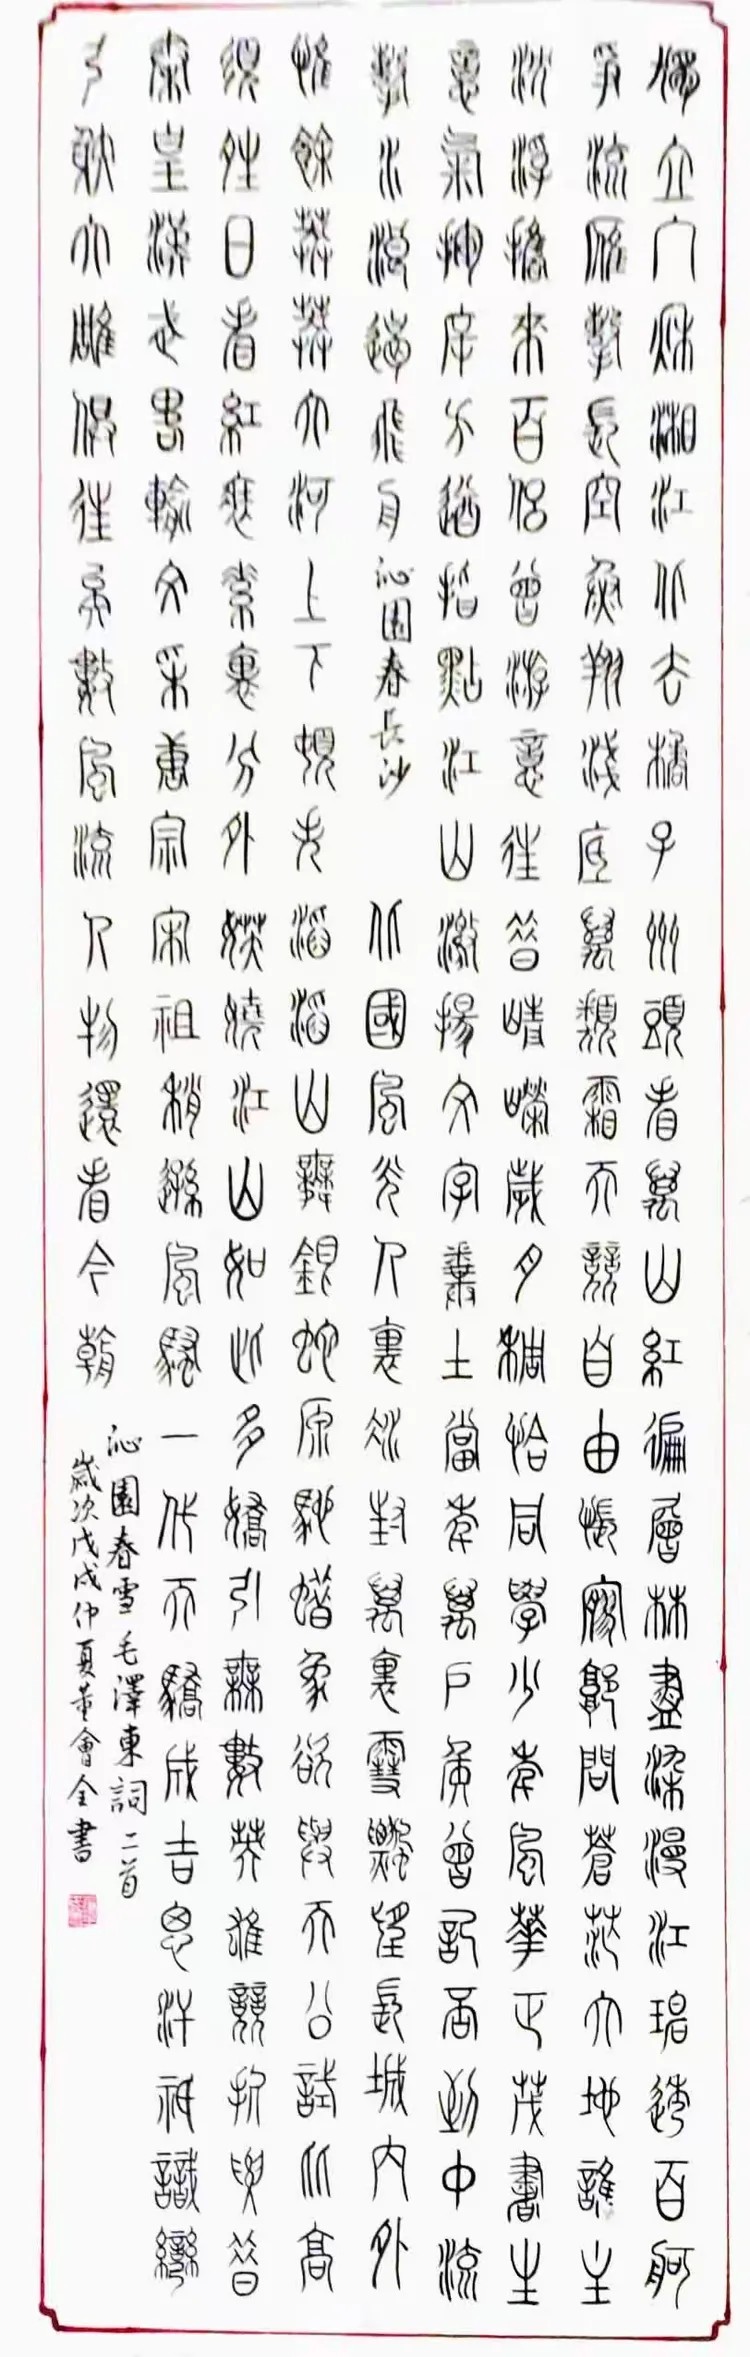 獨立寒秋湘江北去橘子州頭看萬山紅徧層林盡染漫江碧透百舸
爭流雁擊長空魚翔淺底萬類霜天競自由悵寥廓問蒼茫大地誰主
沈浮攜來百侶曾游意往昔崢嶸歲月稠恰同學少年風華正茂書生
意氣揮斥方遒指點江山激揚文字糞土當年萬戶侯曾記否到中流
擊水浪遏飛舟 沁園春長沙 北國風光千裏冰封萬裏雪飄望長城內外
惟餘莽莽大河上下頓失滔滔山舞銀蛇原馳蠟象欲與天公試比高
須晴日看紅裝素裹分外妖嬈江山如此多嬌引無數英雄競折腰昔
秦皇漢武略輸文采唐宗宋祖稍遜風騷一代天驕成吉思汗祗識彎
弓射大雕俱往矣數風流人物還看今朝
沁園春雪毛澤東詞二首
歲次戊戌仲夏董會全書